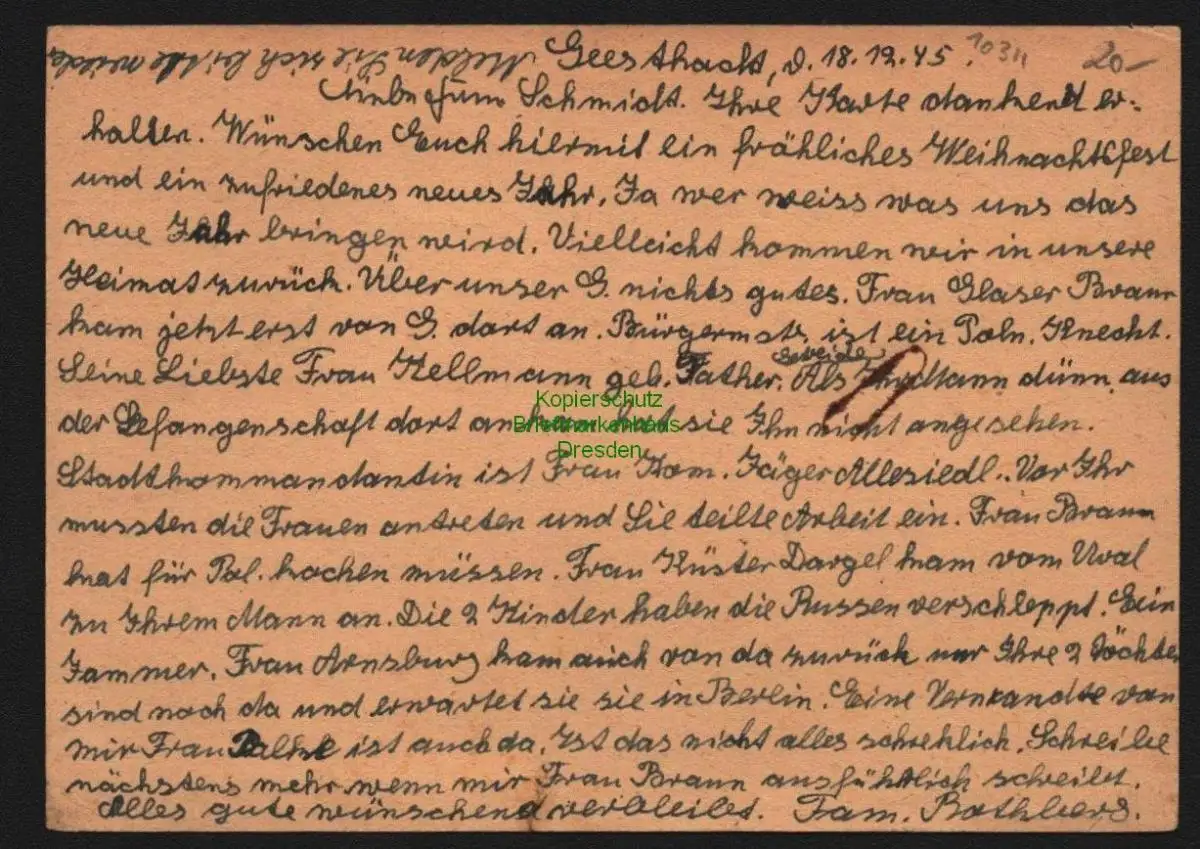 Melden Sie sich bitte wieder
Geesthacht, d. 18.12.45.
10311
20-
Schmidt. Ihre Karte dankend er-
halten. Wünschen Euch hiermit ein fröhliches Weihnachtsfest
und ein zufriedenes neues Jahr. Ja wer weiss was uns das
neue Jahr bringen wird. Vielleicht kommen wir in unsere
Heimat zurück. Über unser G. nichts gutes. Frau Glaser Braun
kam jetzt erst von G. dort an. Bürgermstr. ist ein Poln. Knecht.
Seine Liebste Frau Hellmann geb. Father. Als Mann dünn aus
der Gefangenschaft dort ankam hat sie Ihn nicht angesehen.
Stadtkommandantin ist Frau Kom. Jäger Allesiedl.. Vor Ihr
mussten die Frauen antreten und Sie teilte Arbeit ein. Frau Braun
hat für Pol. kochen müssen. Frau Küster Dargel kam vom Ural
zu Ihrem Mann an. Die 2 Kinder haben die Russen verschleppt. Ein
Jammer. Frau Arnsburg kam auch von da zurück nur Ihre 2 Töchter
sind noch da und erwartet sie sie in Berlin. Eine Verwandte von
mir Frau ist auch da. Ist das nicht alles schreklich. Schreibe
nächstens mehr wenn mir Frau Braun ausführlich schreibt.
Alles gute wünschend verbleibt. Fam. Rothberg.
Kopierschutz
Briefmarkenhaus
Dresden